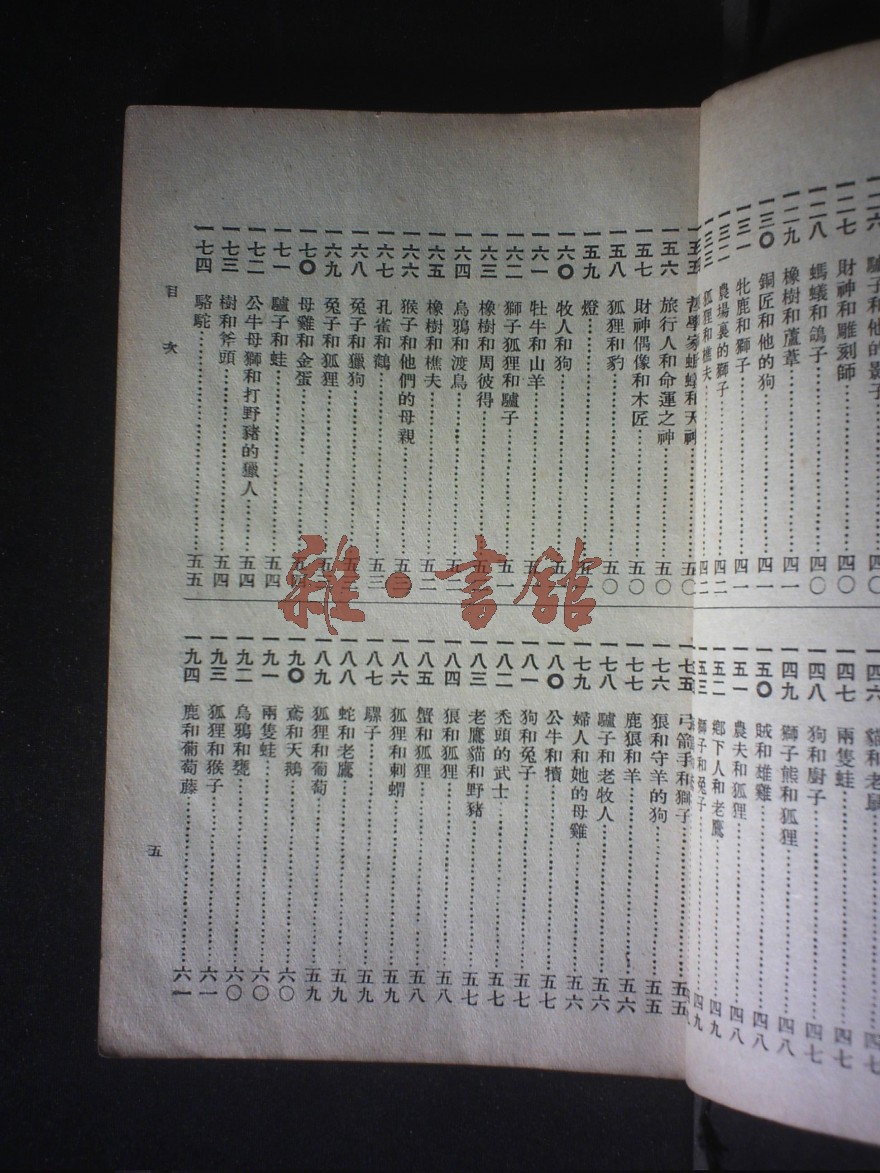 一二六 驢子和他的影子 四〇
一二七 財神和雕刻師 四〇
一二八 螞蟻和鴿子 四〇
一二九 橡樹和蘆葦 四一
一三〇 銅匠和他的狗 四一
一三一 牝鹿和獅子 四一
一三二 農場裏的獅子 四二
一三三 狐狸和樵夫 四二
一四六 貓和老鼠 四七
一四七 兩隻蛙 四七
一四八 狗和廚子 四七
一四九 獅子熊和狐狸 四八
一五〇 賊和雄雞 四八
一五一 農夫和狐狸 四八
一五二 鄉下人和老鷹 四九
一五三 獅子和兔子 四九
一五五 哲學家螞蟻和天神 五〇
一五六 旅行人和命運之神 五〇
一五七 財神偶像和木匠 五〇
一五八 狐狸和豹 五〇
一五九 燈 五一
一六〇 牧人和狗
一六一 牡牛和山羊
一六二 獅子狐狸和驢子 五一
一六三 橡樹和周彼得
一六四 烏鴉和渡鳥
一六五 橡樹和樵夫 五二
一六六 猴子和他們的母親 五三
一六七 孔雀和鶴 五三
一六八 兔子和獵狗
一六九 兔子和狐狸
一七〇 母雞和金蛋
一七一 驢子和蛙 五四
一七二 公牛母獅和打野豬的獵人 五四
一七三 樹和斧頭 五四
一七四 駱駝 五五
一七五 弓箭手和獅子 五五
一七六 狼和守羊的狗 五五
一七七 鹿狼和羊 五六
一七八 驢子和老牧人 五六
一七九 婦人和她的母雞 五六
一八〇 公牛和犢 五七
一八一 狗和兔子 五七
一八二 禿頭的武士 五七
一八三 老鷹貓和野豬 五七
一八四 狼和狐狸 五八
一八五 蟹和狐狸 五八
一八六 狐狸和刺蝟 五九
一八七 騾子 五九
一八八 蛇和老鷹 五九
一八九 狐狸和葡萄 五九
一九〇 鳶和天鵝 六〇
一九一 兩隻蛙 六〇
一九二 烏鴉和甕 六〇
一九三 狐狸和猴子 六一
一九四 鹿和葡萄藤 六一
目次
五
雜·書館